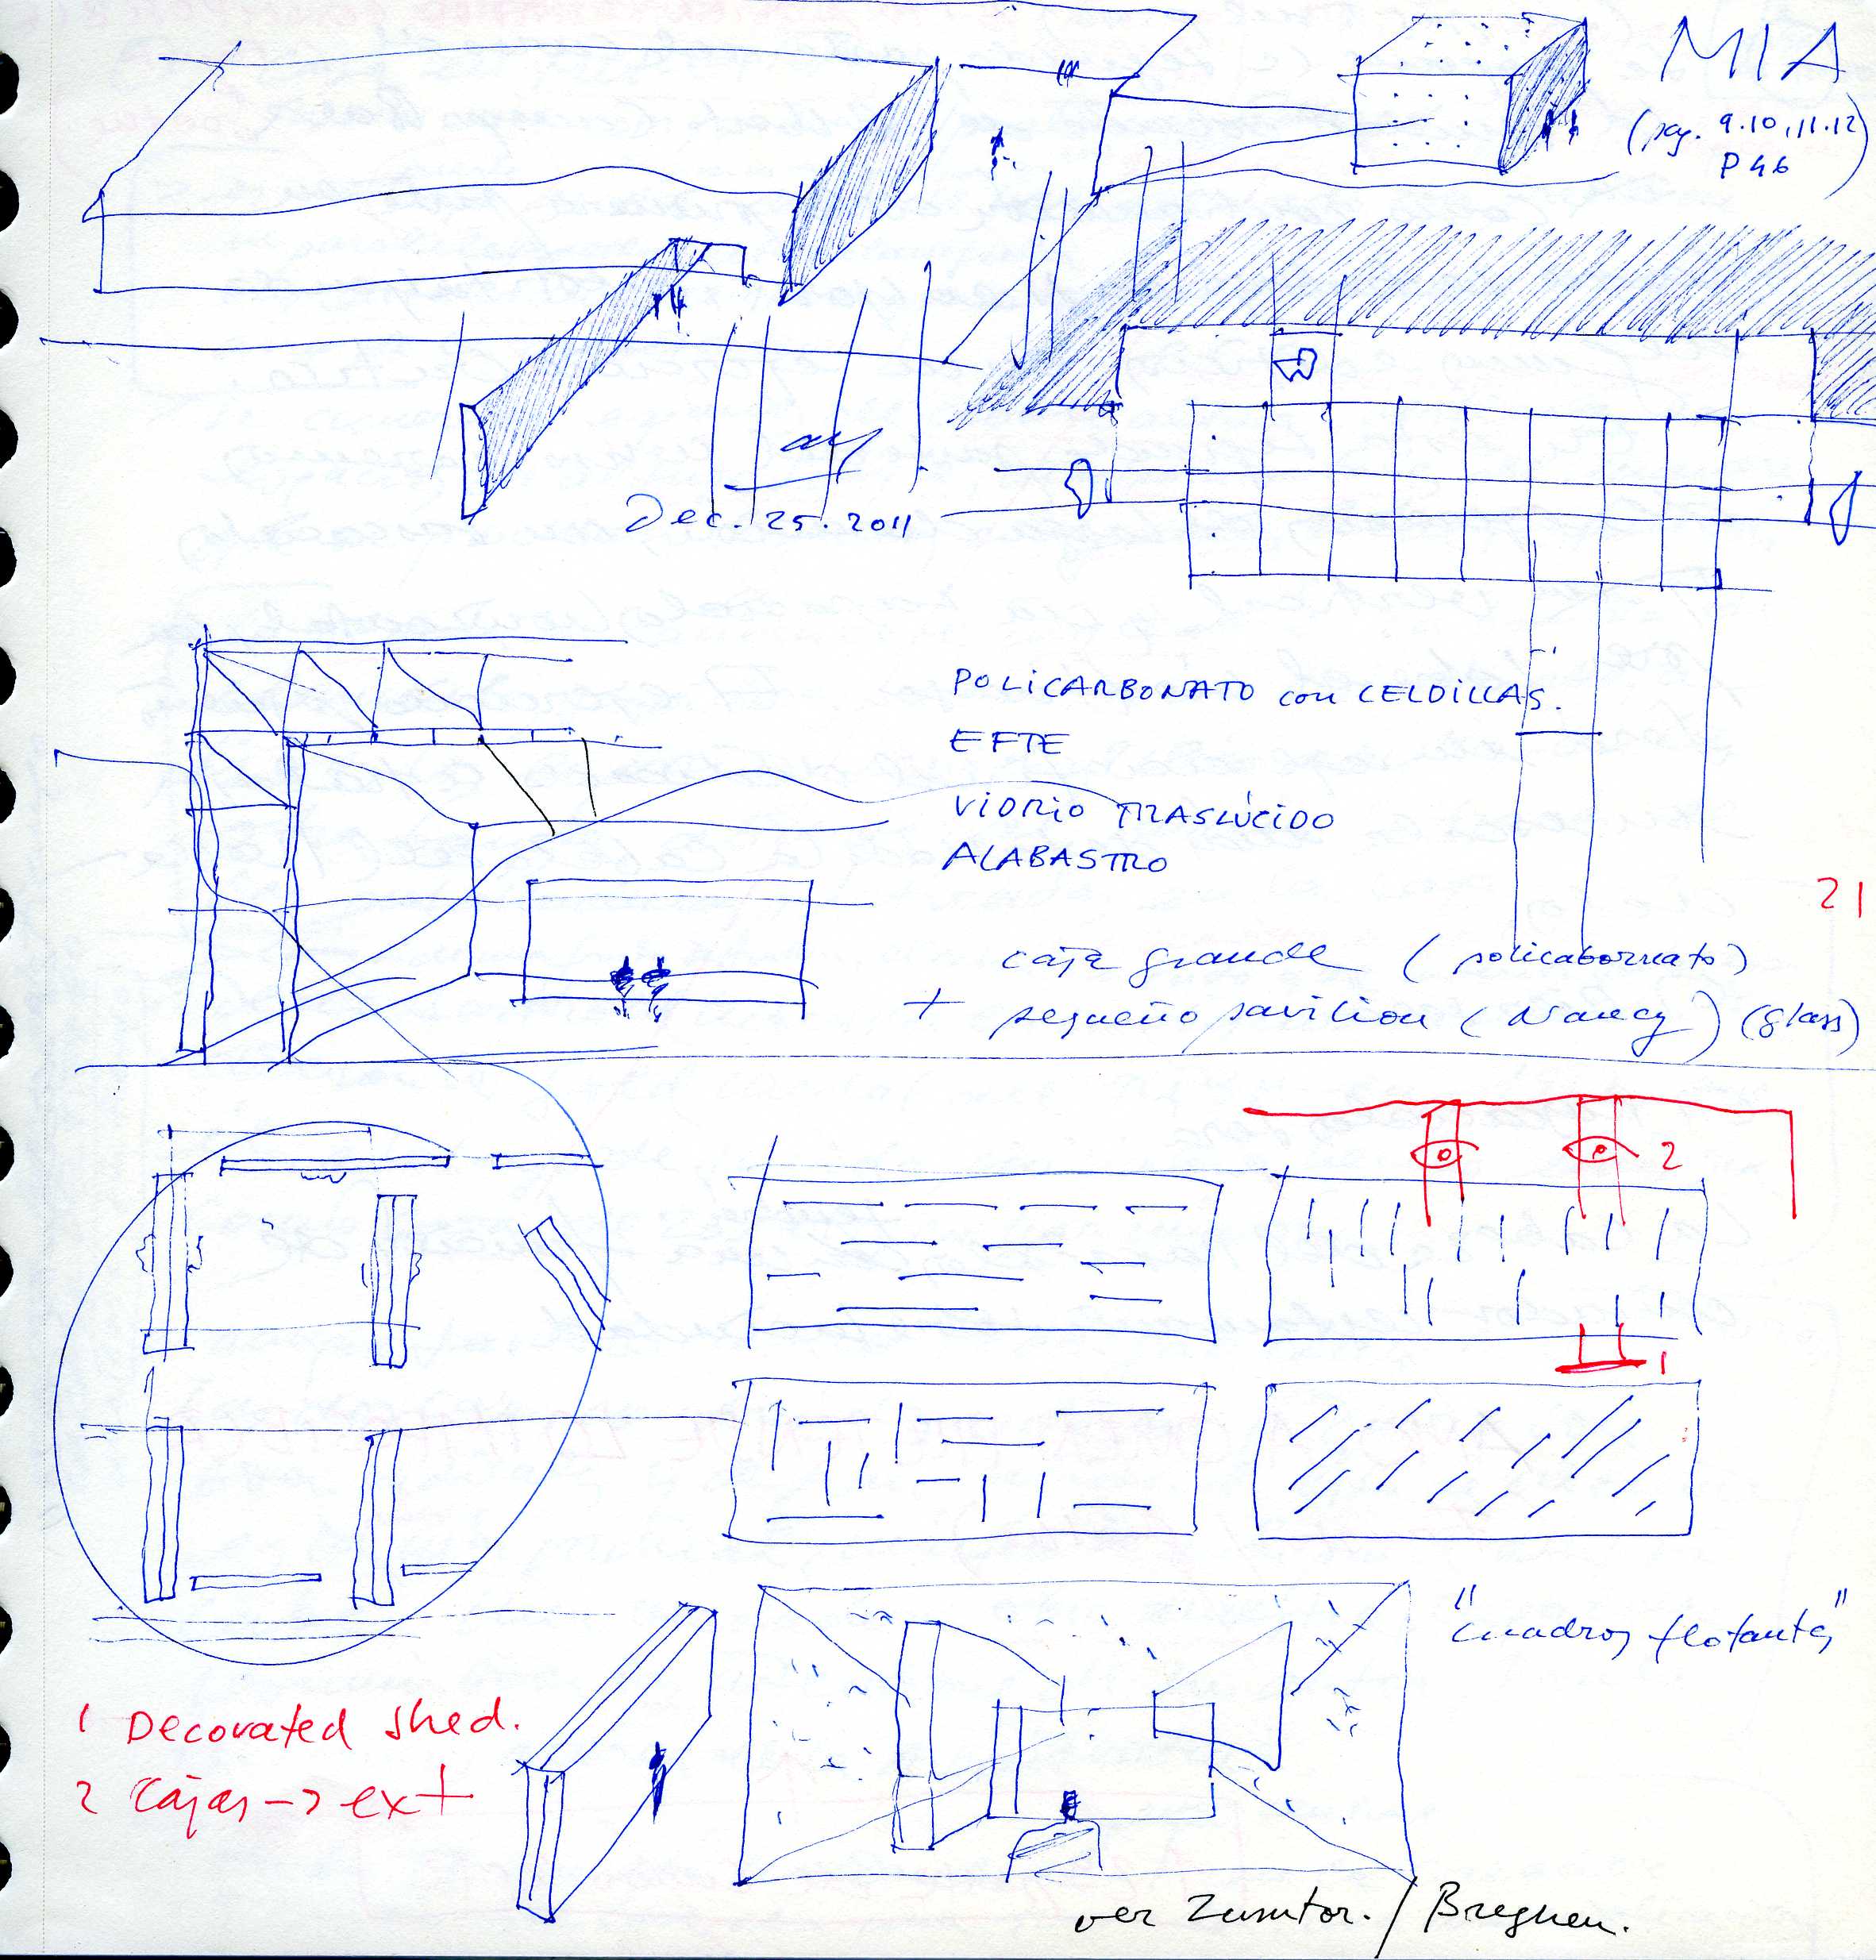 MIA
(pag. 9.10,11.12
P46)
Dec. 25. 2011
POLICARBONATO con CELDILLAS.
EFTE
VIDRIO TRASLÚCIDO
ALABASTRO
21
caja grande (policabornato)
+ pequeño pavilion (Nancy) (glass)
2
1
"cuadros flotantes"
1 Decorated shed.
2 Cajas -> ext
ver Zumtor. / Breghen.